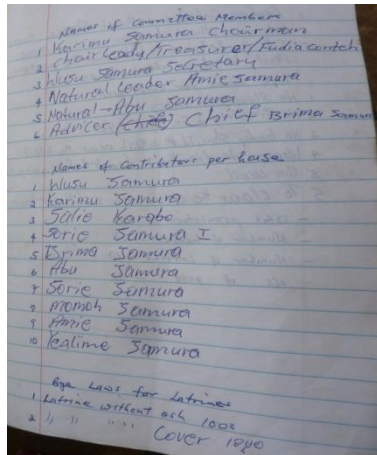 Names of Committee Members
1 Karimu Samura Chairman
2 Chair Leady/Treasurer/Fudia Conteh
3 Wusu Samura Secretary
4 Natural Leader Amie Samura
5 Natural-Abu Samura
6 Advicer Chief Brima Samura
Names of Contributors per house
1 Wusu Samura
2 Karimu Samura
3 Salie Karabo
4 Sorie Samura I
5 Brima Samura
6 Abu Samura
7 Sorie Samura
7 Momoh Samura
9 Amie Samura
10 Yealime Samura
Bye Laws for Latrines
1 Latrine without ash 1000
2 " " " " Cover 1000